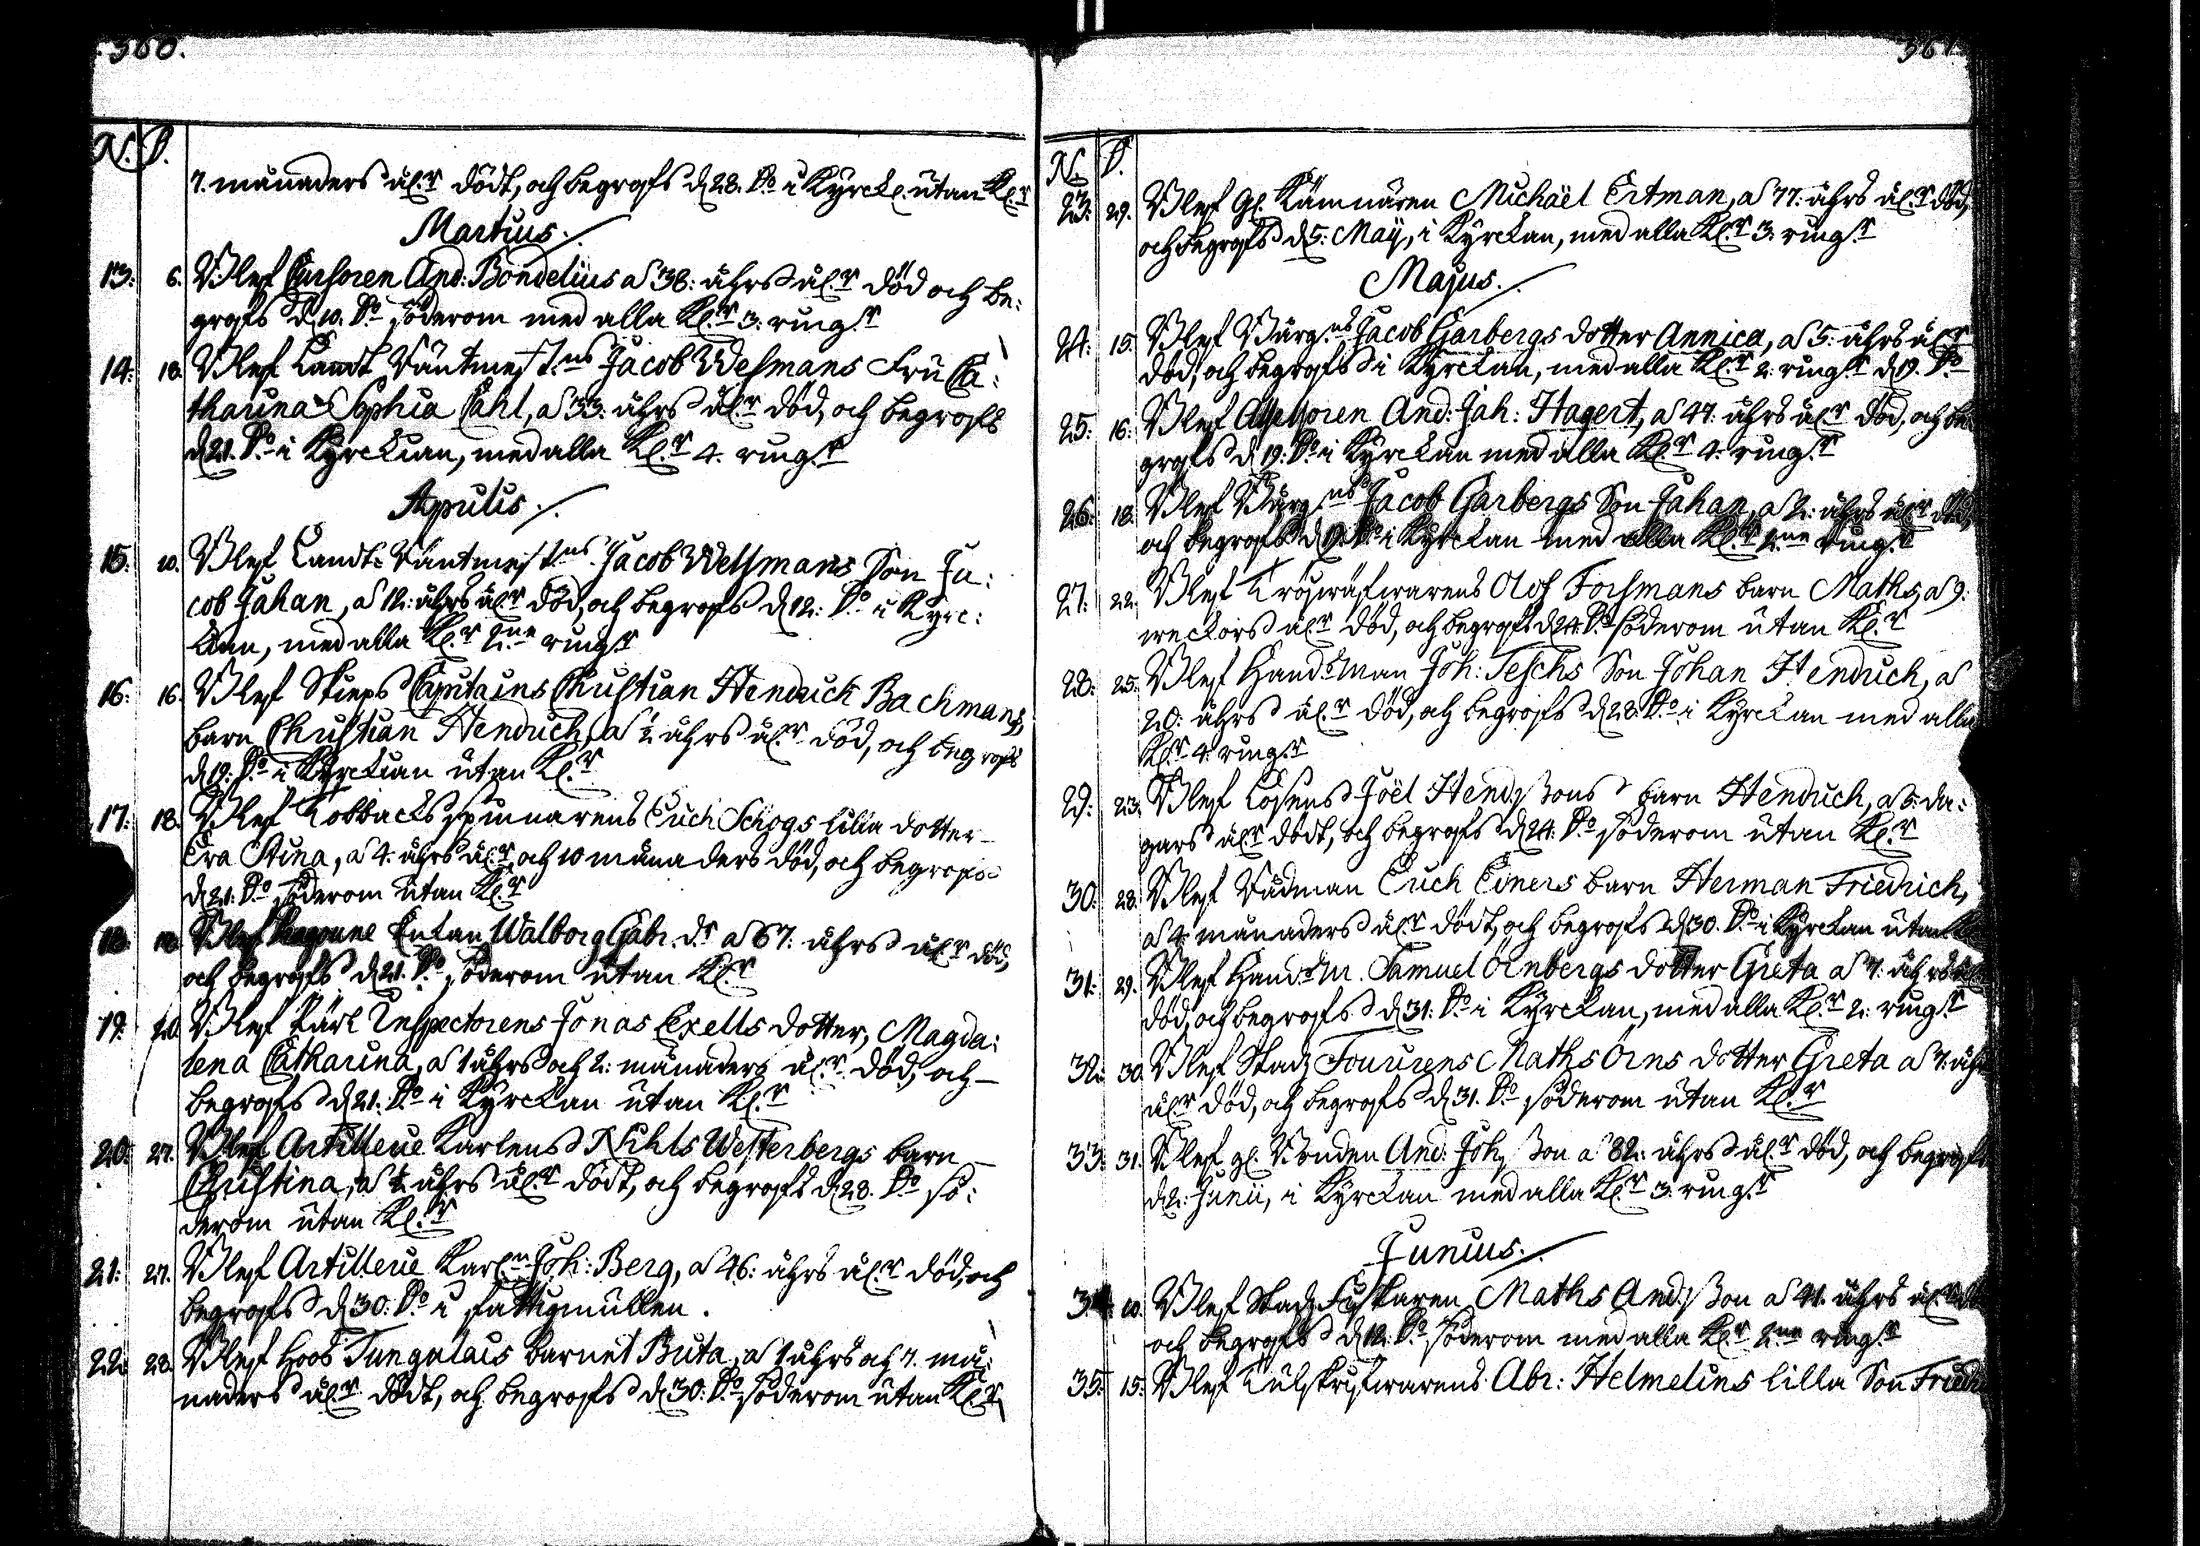 360.
N. D.
7. månaders ål.r dödt, och begrofs d 28. D.o i Kyrck. utan Kl.r
Martius.
13. 6. Blef Cursoren And: Bondelius a 38: åhrs ål.r död och be:
grofs d 10. D.o söderom med alla Kl.r 3. ring.r
14. 18. Blef Landt Räntmest.ns Jacob Wesmans Fru Ca:
tharina Sophia Cahl, a 33: åhrs ål.r död, och begrofs
d 21. D.o i Kyrckian, med alla Kl.r 4. ring.r
Aprilis.
15. 10. Blef Landt-Räntmest.ns Jacob Wessmans Son Ja:
cob Johan, a 12: åhrs ål.r död, och begrofs d 12: D.o i Kyrc:
kian, med alla Kl.r 2.ne ring.r
16. 16. Blef Skieps Capitains Christian Hendrich Bachmans
barn Christian Hendrich, a ½ åhrs ål.r död, och begrofs
d 19: D.o i Kyrckian utan Kl.r
17. 18. Blef Tobbacks spinnarens Erich Schogs lilla dotter
Stina, a 4. åhrs ål.r och 10 månaders död, och begrofs
d 21. D.o söderom utan Kl.r
18. 18. Blef Enkan Walborg Gabr. d.r a 67. åhrs ål.r död,
och begrofs d 21. D.o söderom utan Kl.r
19. 20. Blef Inspectorens Jonas Exells dotter, Magda:
lena Catharina, a 1 åhrs och 2: månaders ål.r död, och
begrofs d 21. D.o i Kyrckan utan Kl.r
20. 27. Blef Artillerie Karlens Nihls Westerbergs barn
Christina, a ½ åhrs ål.r dödt, och begrofs d 28. D.o sö:
derom utan Kl.r
21. 27. Blef Artillerie Karl.n Joh: Berg, a 46: åhrs ål.r död, och
begrofs d 30. D.o i fattigmullen.
22. 28. Blef hoos Tungalais barnet Brita, a 1 åhrs och 7. må:
naders ål.r dödt, och begrofs d 30: D.o söderom utan Kl.r
361.
N. D.
23. 29. Blef gl. Kämnären Michaël Ertman, a 77. åhrs ål.r död,
och begrofs d 5: Maÿ, i Kyrckan, med alla Kl.r 3. ring.r
Majus.
24. 15. Blef Jacob Garbergs dotter Annica, a 5: åhrs ål.r
död, och begrofs i Kyrckan, med alla Kl.r 2. ring.r d 19. D.o
25. 16. Blef Assessoren And: Joh: Hagert, a 47. åhrs ål.r död, och be
grofs d 19: D.o i Kyrckan med alla Kl.r 4. ring.r
26. 18. Blef Jacob Garbergs Son Johan, a 2: åhrs ål.r död,
och begrofs d 19. D.o i Kyrckan med alla Kl.r 2.ne ring.r
27. 22. Blef Olof Forsmans barn Maths, a 9.
weckors ål.r död, och begrofs d 24. D.o söderom utan Kl.r
28. 25. Blef Hand.sman Joh: Teschs Son Johan Hendrich, a
20: åhrs ål.r död, och begrofs d 28. D.o i Kyrckan med alla
Kl.r 4. ring.r
29. 23. Blef Joël Hend:ssons barn Hendrich, a 3. da:
gars ål.r dödt, och begrofs d 24. D.o söderom utan Kl.r
30. 28. Blef Rådman Erich Einers barn Herman Friedrich,
a 4. månaders ål.r dödt, och begrofs d 30. D.o i Kyrckan utan
31. 29. Blef Hand.sm. Samuel Örnbergs dotter Greta a 7. åhrs ål
död, och begrofs d 31. D.o i Kyrckan, med alla Kl.r 2. ring.r
32. 30. Blef Stadz Fourirens Maths Örns dotter Greta a 7: åhr
ål.r död, och begrofs d 31. D.o söderom utan Kl.r
33. 31. Blef gl. Bonden And: Joh:sson a 82: åhrs ål.r död, och begrofs
d 2: Junii, i Kyrckan med alla Kl.r 3. ring.r
Junius.
34. 10. Blef Stadz Fiskaren Maths And:sson a 41. åhrs ål.r
och begrofs d 12. D.o söderom med alla Kl.r 2.ne ring.r
35. 15. Blef Tulskrifwarens Abr: Helmelins lilla Son Fried